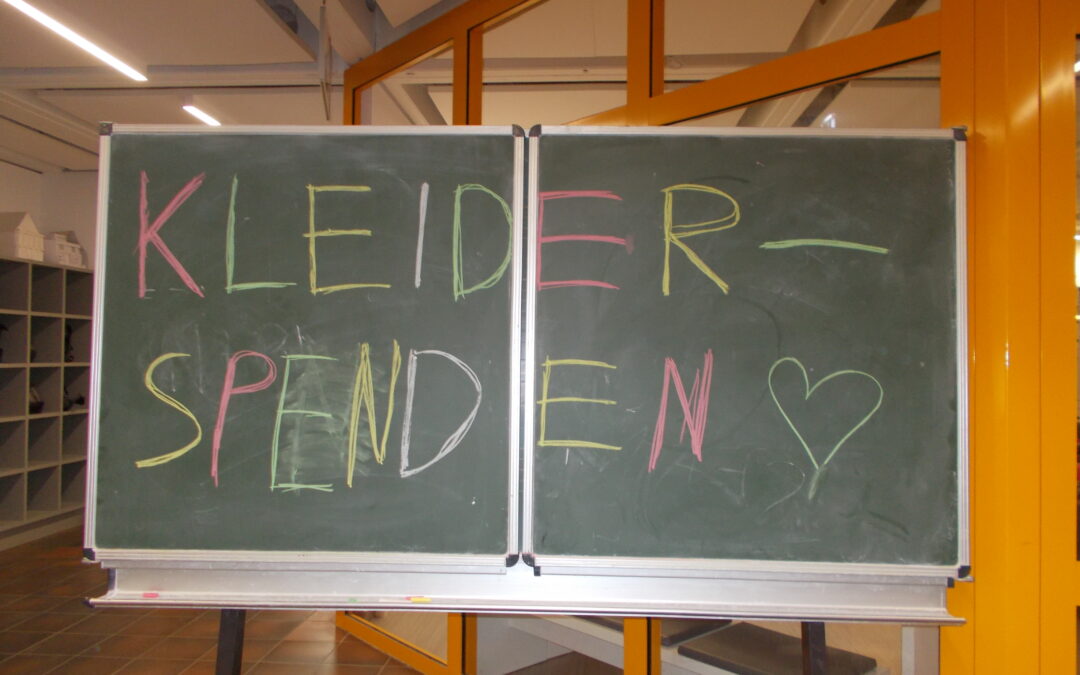 KLEIDER-
SPENDEN ♡